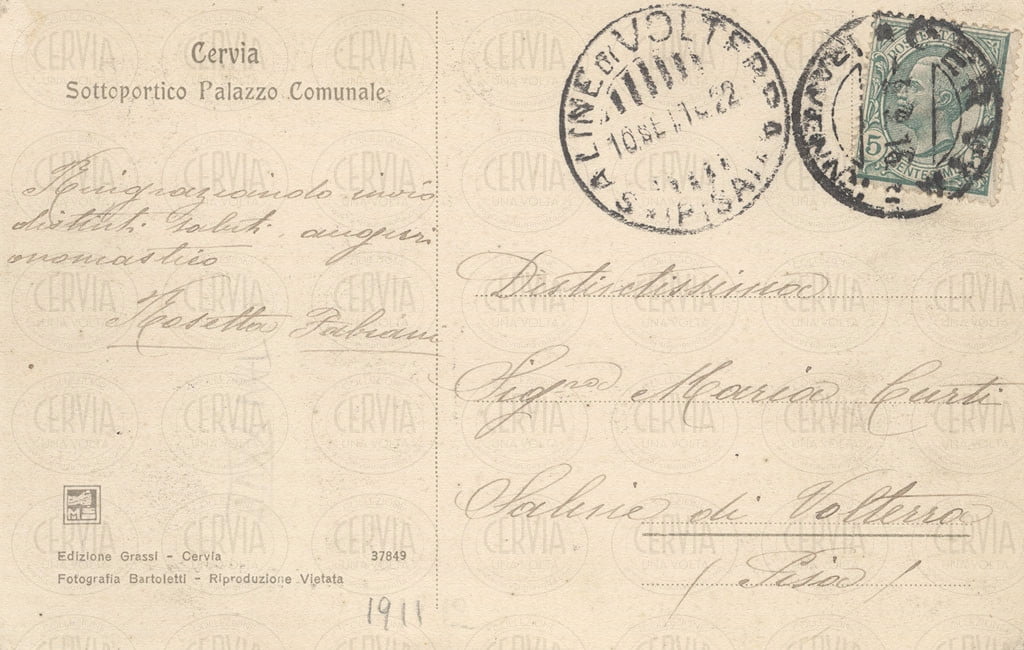 Cervia
Sottoportico Palazzo Comunale
Ringraziando invio
distinti saluti, auguri
onomastico
Rosetta Fabiani
SALINE DI VOLTERRA
10 SET 11 22
(PISA)
CERVIA
(RAVENNA)
POSTE
5
CENTESIMI
Distintissima
Sig.na Maria Curti
Saline di Volterra
(Pisa)
M
Edizione Grassi - Cervia 37849
Fotografia Bartoletti - Riproduzione Vietata
1911
CERVIA
UNA VOLTA